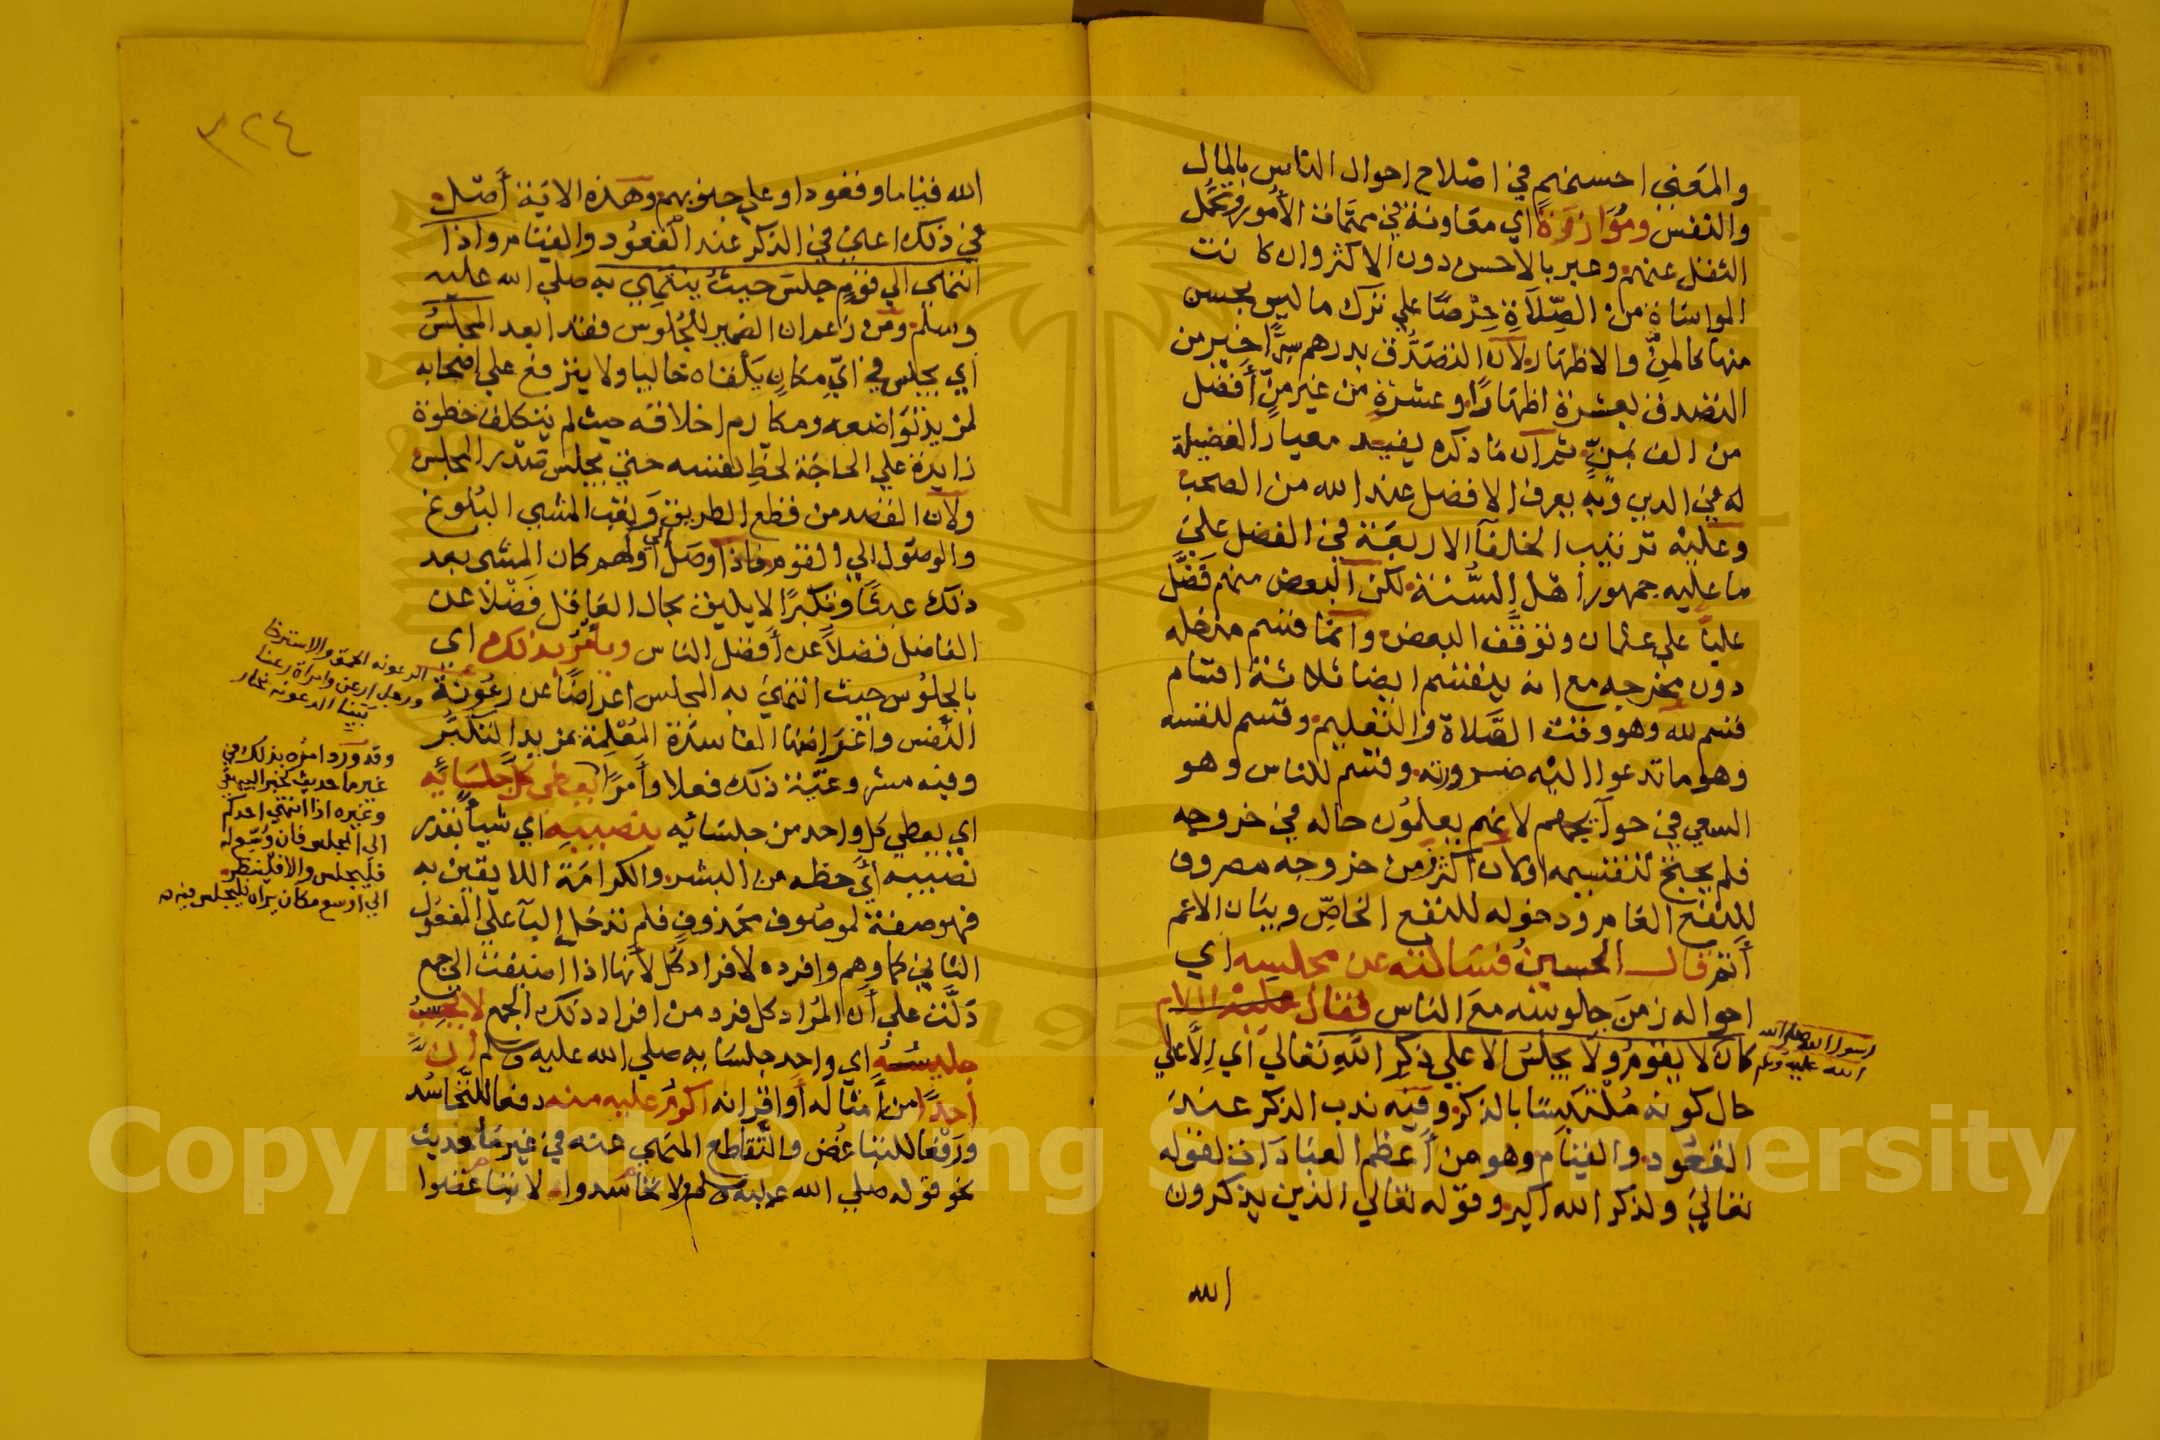 والمعنى احسنهم في اصلاح احوال الناس بالمال
والنفس ومؤازرة اي معاونة في مهمات الأمور وتحمل
الثقل عنهم وعبر بالاحسن دون الاكثر وان كانت
المواساة من الصلاة حرصا علي ترك ما ليس بحسن
منها كالمن والاظهار لان التصدق بدرهم سرا خير من
التصدق بعشرة اظهارا وعشرة من غير من أفضل
من الف بمن ثم ان ما ذكره يفيد معيار الفضيلة
له في الدين وبه يعرف الافضل عند الله من الصحب
وعليه ترتيب الخلفآ الاربعة في الفضل علي
ما عليه جمهور أهل السنة لكن البعض منهم فضل
عليا علي عثمان وتوقف البعض وانما قسم مدخله
دون مخرجه مع انه ينقسم ايضا ثلاثة اقسام
قسم لله وهو وقت الصلاة والتعليم وقسم لنفسه
وهو ما تدعوا اليه ضرورته وقسم للناس وهو
السعي في حوآيجهم لانهم يعلمون حاله في خروجه
فلم يحتج لتقسيمه او كان اكثر من خروجه مصروف
للنفع العام ودخوله للنفع الخاص وبيان الاهم
أتم قال الحسين فسألته عن مجلسه اي
احواله زمن جلوسه مع الناس فقال
كان رسول الله صلي الله
الله عليه وسلم
كان لا يقوم ولا يجلس الا علي ذكر الله تعالي اي إلا علي
حال كونه ملتبسا بالذكر وفيه ندب الذكر عند
القعود والقيام وهو من أعظم العبادات لقوله
تعالي ولذكر الله اكبر وقوله تعالي الذين يذكرون
الله
٣٢٤
الله قياما وقعودا وعلي جنوبهم وهذه الاية أصل
في ذلك اعني في الذكر عند القعود والقيام واذا
انتهي الي قوم جلس حيث ينتهي به صلي الله عليه
وسلم ومن زعم ان الضمير للجلوس فقد ابعد المجلس
اي يجلس في اي مكان يلقاه خاليا ولا يترفع علي اصحابه
لمزيد تواضعه ومكارم اخلاقه حيث لم يتكلف خطوة
زايدة علي الحاجة لحظ نفسه حتي يجلس صدر المجلس
ولان القصد من قطع الطريق وتعب المشي البلوغ
والوصول الي القوم فاذا وصل الي اولهم كان المشي بعد
ذلك عبثا وتكبرا لا يليق بحال العاقل فضلا عن
الفاضل فضلا عن أفضل الناس ويأمر بذلك اي
بالجلوس حيث انتهي به المجلس اعراضا عن رعونة
النفس واغراضها الفاسدة المعلمة بمزيد التكبر
وفيه مشروعية ذلك فعلا وأمرا يعطي كل جلسائه
اي يعطي كل واحد من جلسائه بنصيبه اي شيأ بقدر
نصيبه أي حظه من البشر والكرامة اللايقين به
فهو صفة لموصوف محذوف فلم تدخل البآ علي المفعول
الثاني كما وهم وافرده لافراد كل لأنها اذا اضيفت الي جمع
دلت علي أن المراد كل فرد من افراد ذلك الجمع لا يحسب
جليسه اي واحد جلسايه صلي الله عليه وسلم أن
أحدا من أمثاله أو اقرانه اكرم عليه منه دفعا للتحاسد
ورفعا للتباغض والتقاطع المنهي عنه في غير ما حديث
نحو قوله صلي الله عليه وسلم لا تحاسدوا ولا تباغضوا
الرعونه الحمق والاسترخا
ورجل ارعن وامراة رعنا
بينا الرعونه مختار
وقد ورد امره بذلك في
غير ما حديث كخبر البيهقي
وغيره اذا انتهي احدكم
الي المجلس فان وسع له
فليجلس والا فلينظر
الي اوسع مكان يراه فليجلس فيه
Copyright © King Saud University
1957